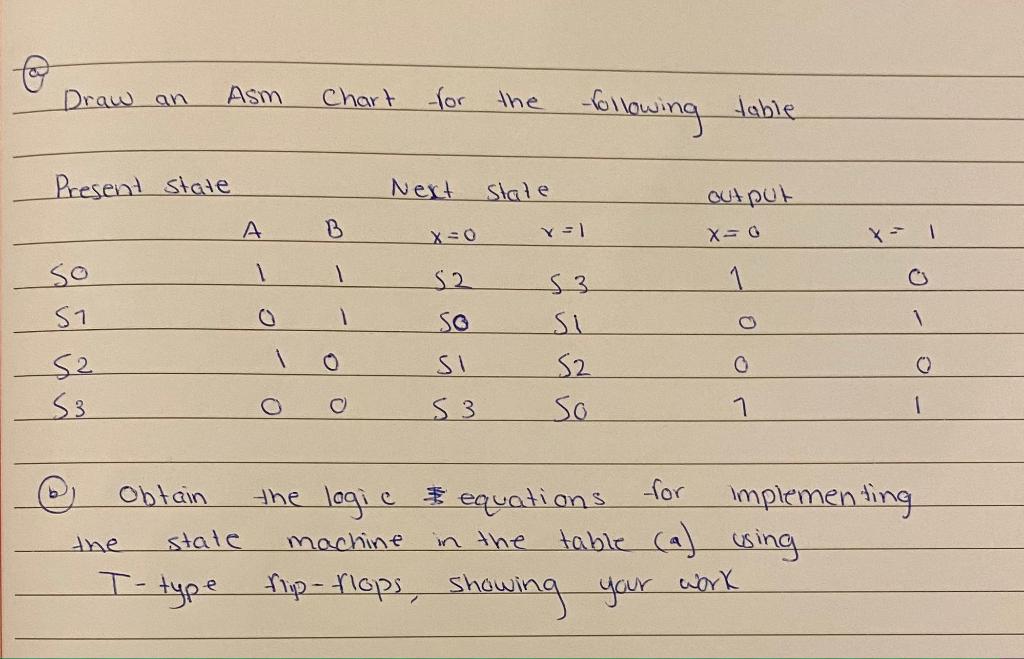 (a)
Draw an Asm Chart for the following table
Present state Next state output
A B x=0 x=1 x=0 x= 1
S0 1 1 S2 S3 1 0
S1 0 1 S0 S1 0 1
S2 1 0 S1 S2 0 0
S3 0 0 S3 S0 1 1
(b) Obtain the logic equations for implementing
the state machine in the table (a) using
T-type flip-flops, showing your work